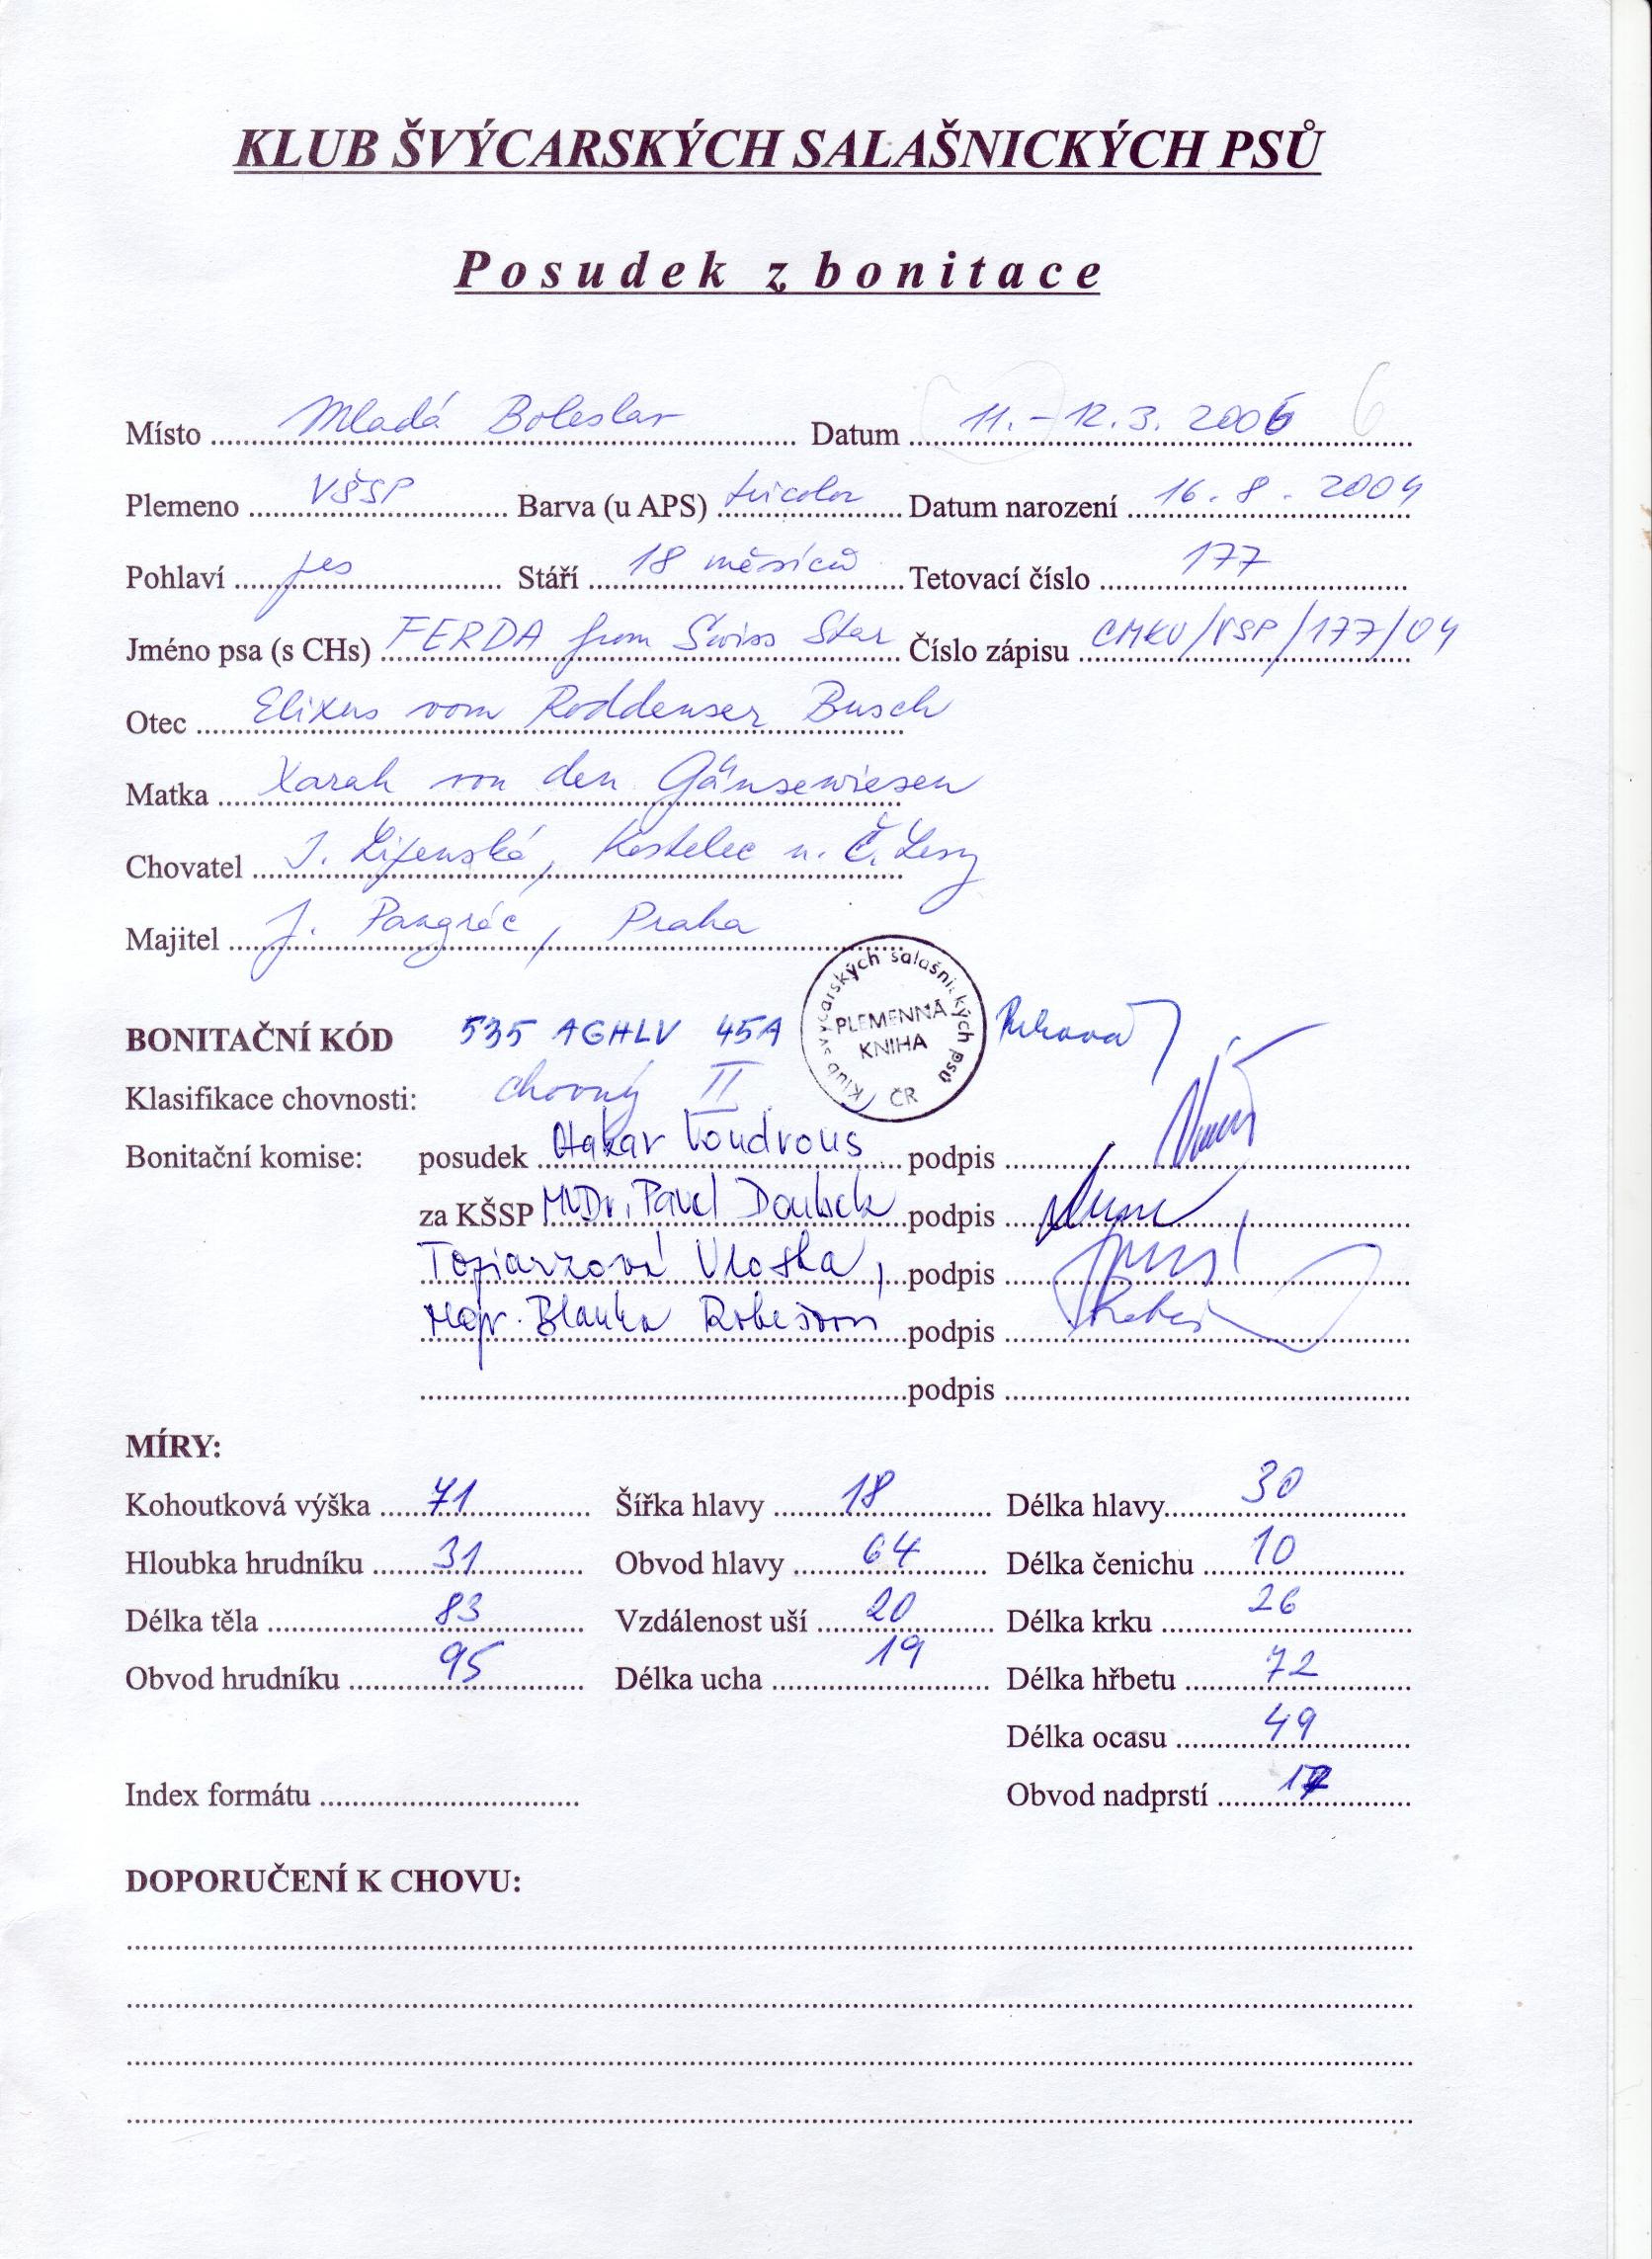 KLUB ŠVÝCARSKÝCH SALAŠNICKÝCH PSŮ
Posudek z bonitace
Místo Mladá Boleslav Datum 11.-12.3. 2006 6
Plemeno VŠSP Barva (u APS) tricolor Datum narození 16. 8. 2004
Pohlaví pes Stáří 18 měsíců Tetovací číslo 177
Jméno psa (s CHs) FERDA from Swiss Star Číslo zápisu CMKU/VSP/177/04
Otec Elixus vom Roddenser Busch
Matka Xarah von den Gänsewiesen
Chovatel J. Kostelec n. Č. Lesy
Majitel J. Pangrác, Praha
BONITAČNÍ KÓD 535 AGHLV 45A
Klub švýcarských salašnických psů PLEMENNÁ KNIHA ČR
Klasifikace chovnosti: chovný II
Bonitační komise: posudek Otakar Vondrous podpis
za KŠSP MVDr. Pavel Doubek podpis
Vlasta, podpis
Mgr. Blanka podpis
podpis
MÍRY:
Kohoutková výška 71 Šířka hlavy 18 Délka hlavy 30
Hloubka hrudníku 31 Obvod hlavy 64 Délka čenichu 10
Délka těla 83 Vzdálenost uší 20 Délka krku 26
Obvod hrudníku 95 Délka ucha 19 Délka hřbetu 72
Délka ocasu 49
Index formátu Obvod nadprstí 17
DOPORUČENÍ K CHOVU: